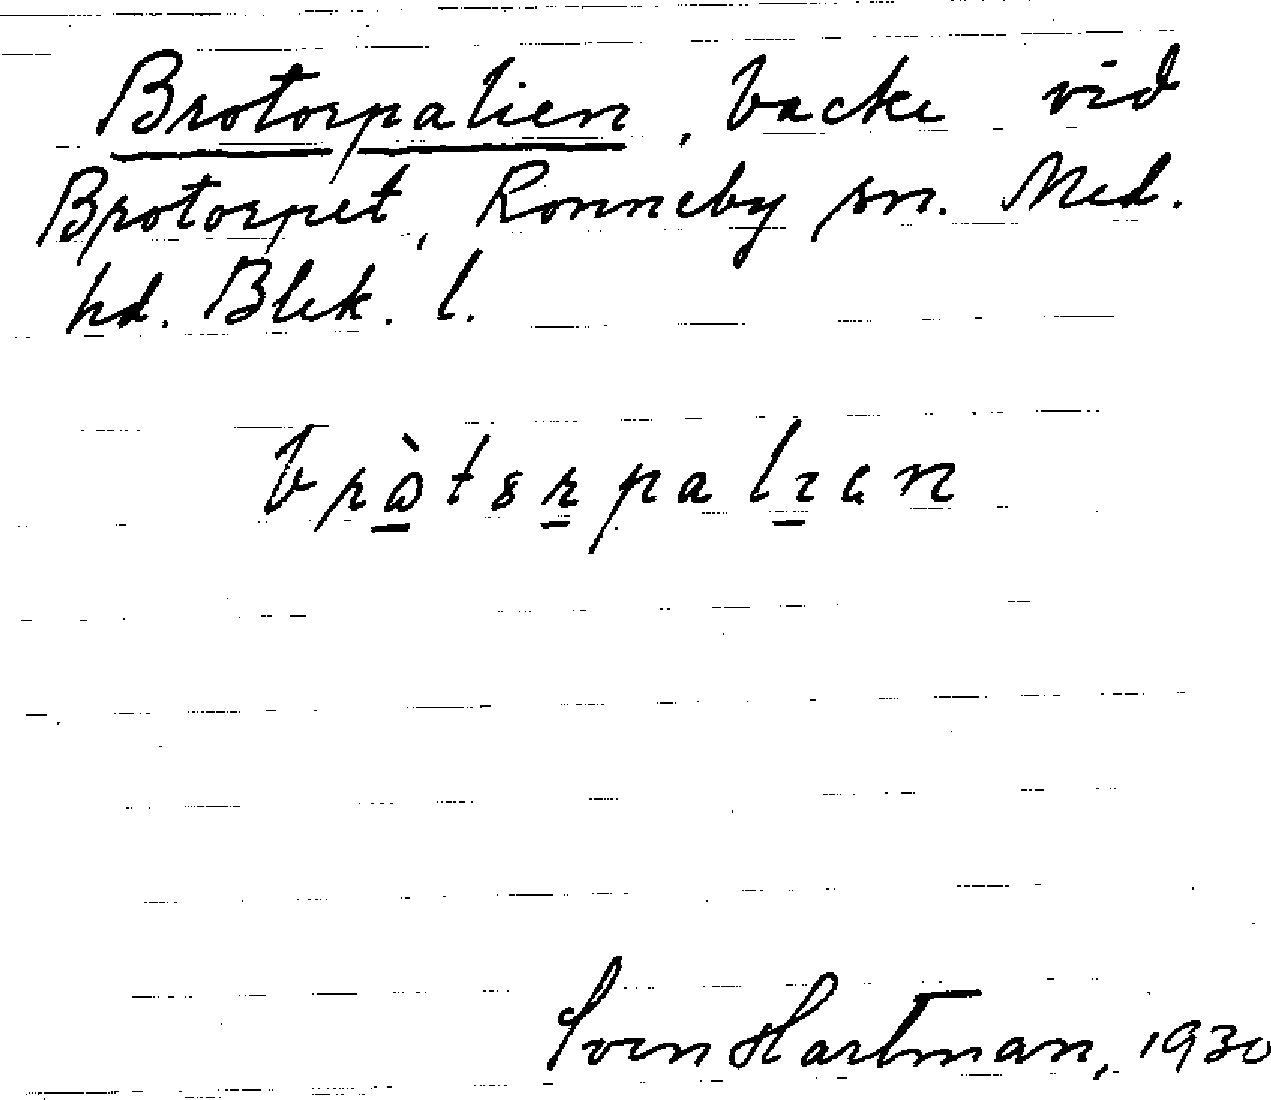 Brotorpalien, backe vid
Brotorpet, Ronneby sn. Med.
hd. Blek. l.
Sven Hartman, 1930